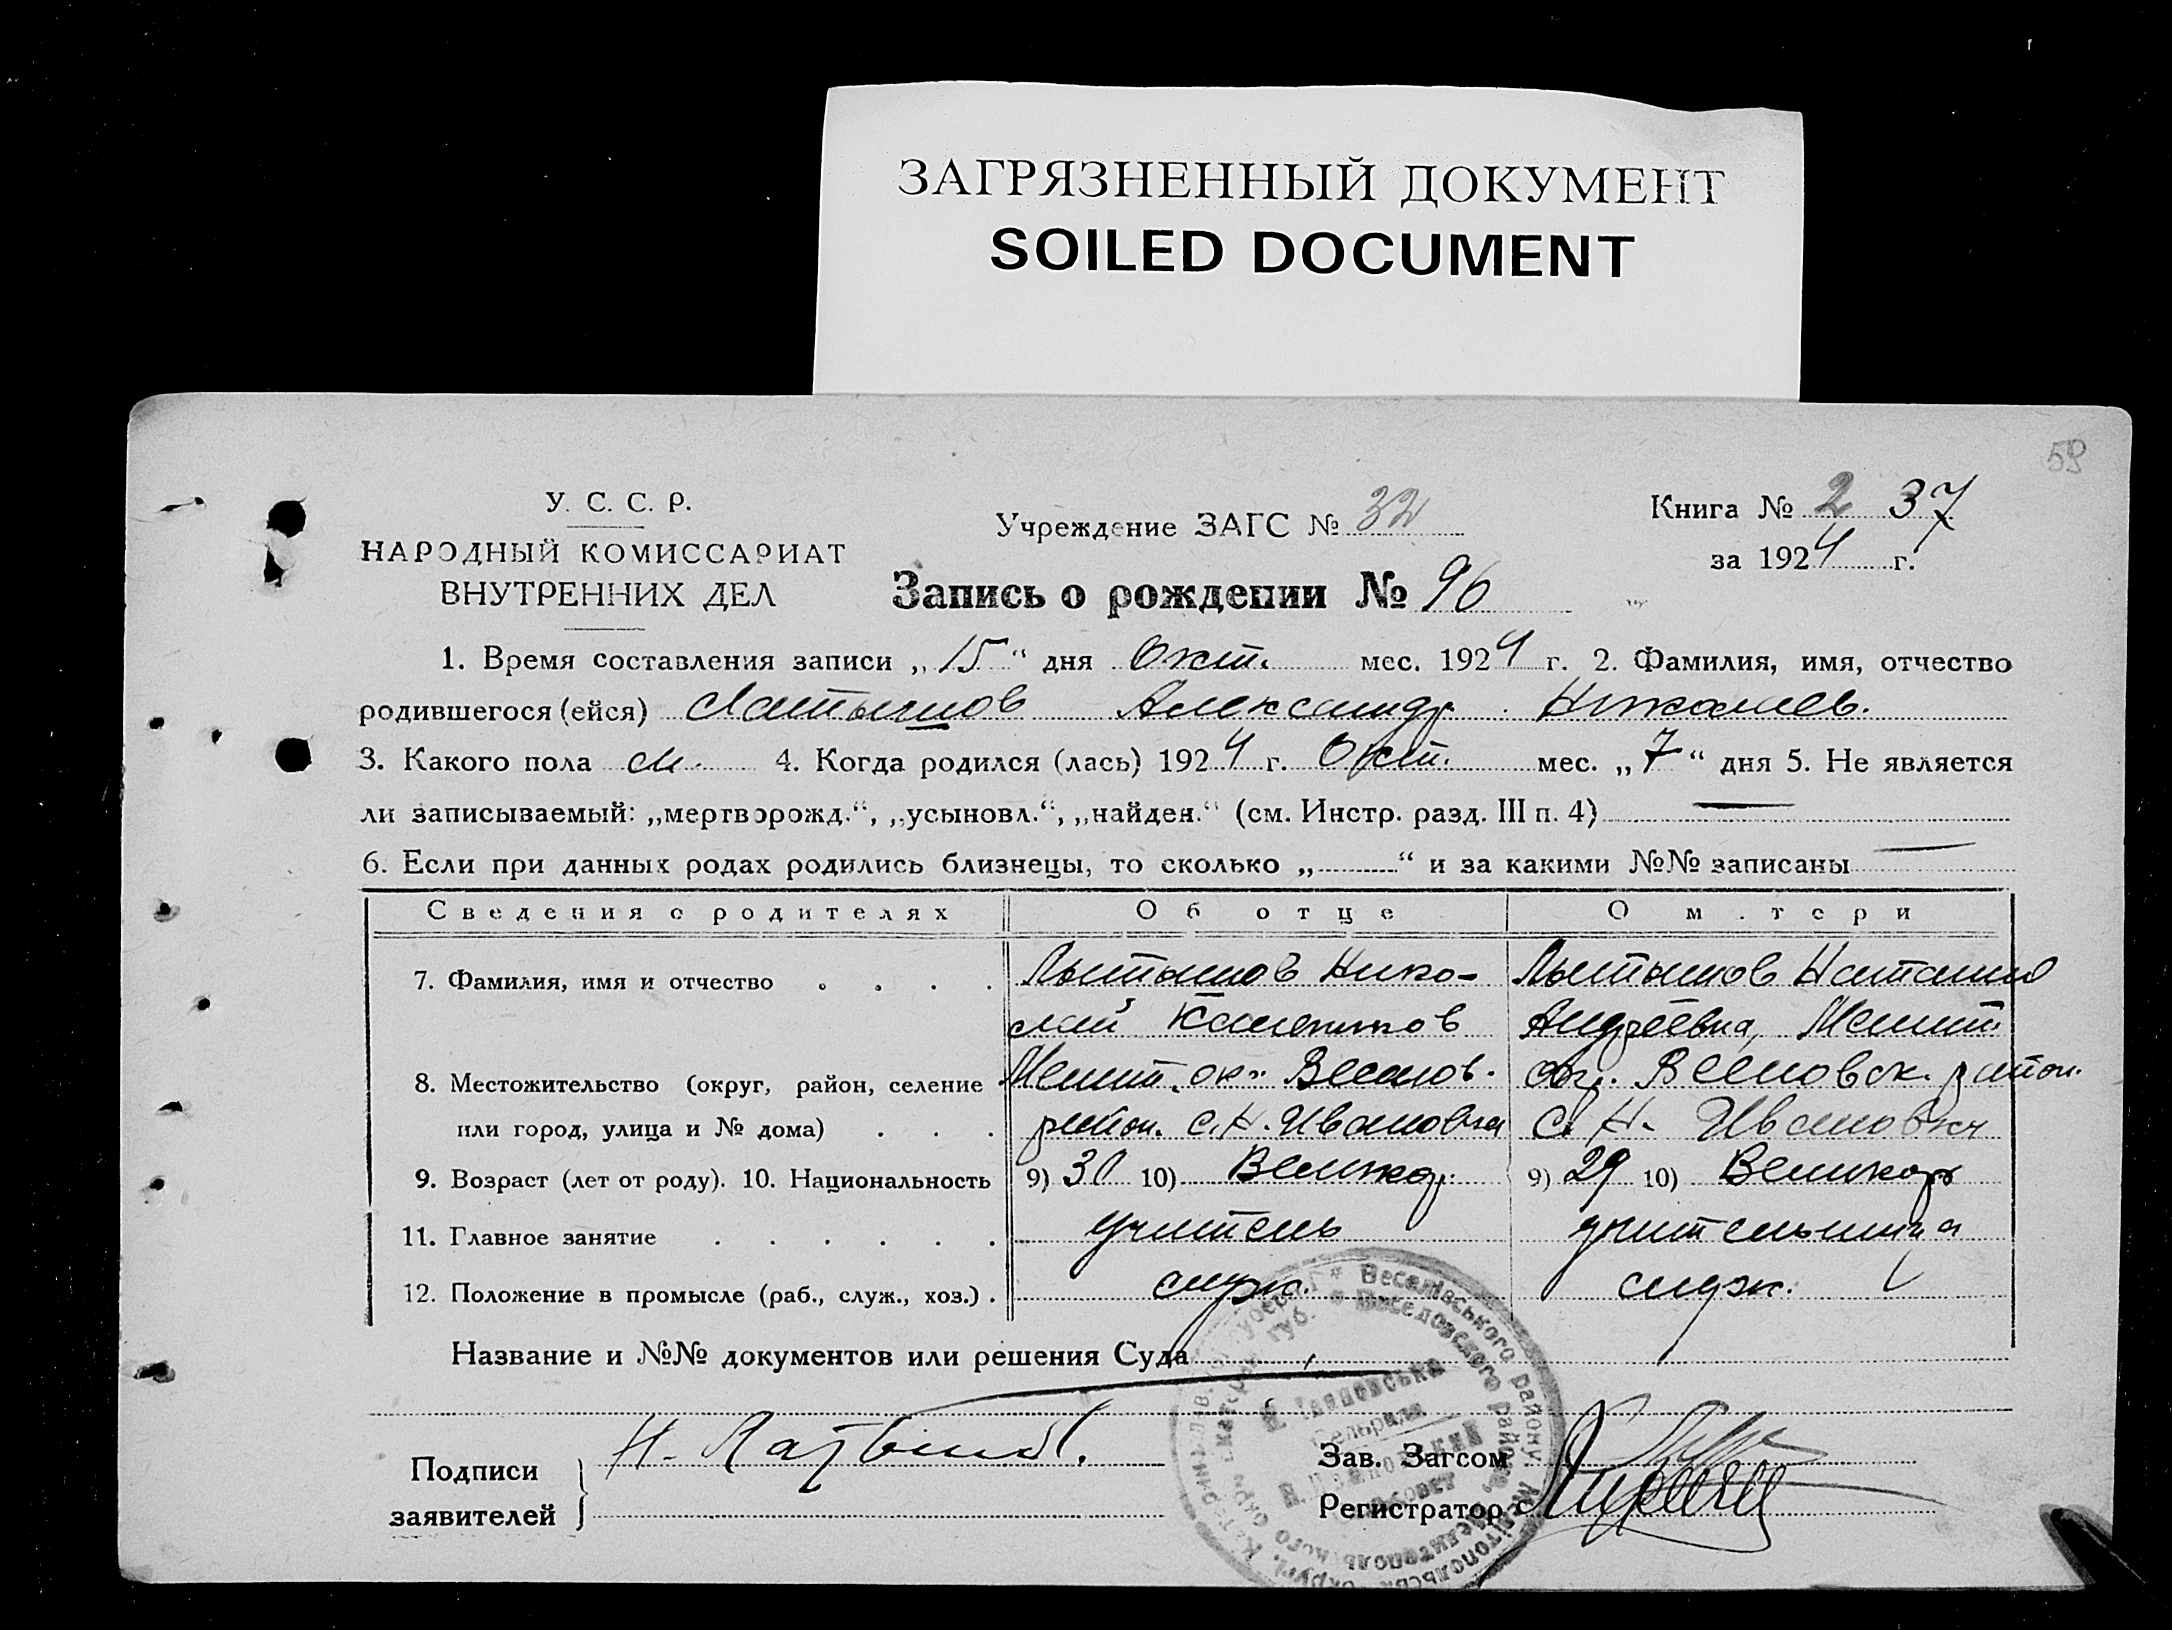 ЗАГРЯЗНЕННЫЙ ДОКУМЕНТ
SOILED DOCUMENT
59
У. С. С. Р.
НАРОДНЫЙ КОМИССАРИАТ
ВНУТРЕННИХ ДЕЛ
Учреждение ЗАГС № 32
Книга № 2 37
за 1924 г.
Запись о рождении № 96
1. Время составления записи „15“ дня Окт. мес. 1924 г. 2. Фамилия, имя, отчество
родившегося (ейся) Латышов Александр Николаев.
3. Какого пола м. 4. Когда родился (лась) 1924 г. Окт. мес. „7“ дня 5. Не является
ли записываемый: „мертворожд.“, „усыновл.“, „найден.“ (см. Инстр. разд. III п. 4)
6. Если при данных родах родились близнецы, то сколько „ “ и за какими №№ записаны
Сведения о родителях Об отце О матери
7. Фамилия, имя и отчество . . . . Латышов Нико- Латышов Наталия
лай Андреевна, Мелит.
8. Местожительство (округ, район, селение Мелит. ок. Веселов. окр. Веселовск. район.
или город, улица и № дома) . . . район. с. Н. Ивановка с. Н. Ивановка
9. Возраст (лет от роду). 10. Национальность 9) 30 10) Великор. 9) 29 10) Великор
11. Главное занятие . . . . . . учитель учительница
12. Положение в промысле (раб., служ., хоз.) . служ. служ.
Название и №№ документов или решения Суда
Подписи
заявителей
Н. Латышов.
Зав. Загсом
Регистратор
Веселівського району
Веселовского района
Н Івановська
Сельрада
Н. Ивановский
совет